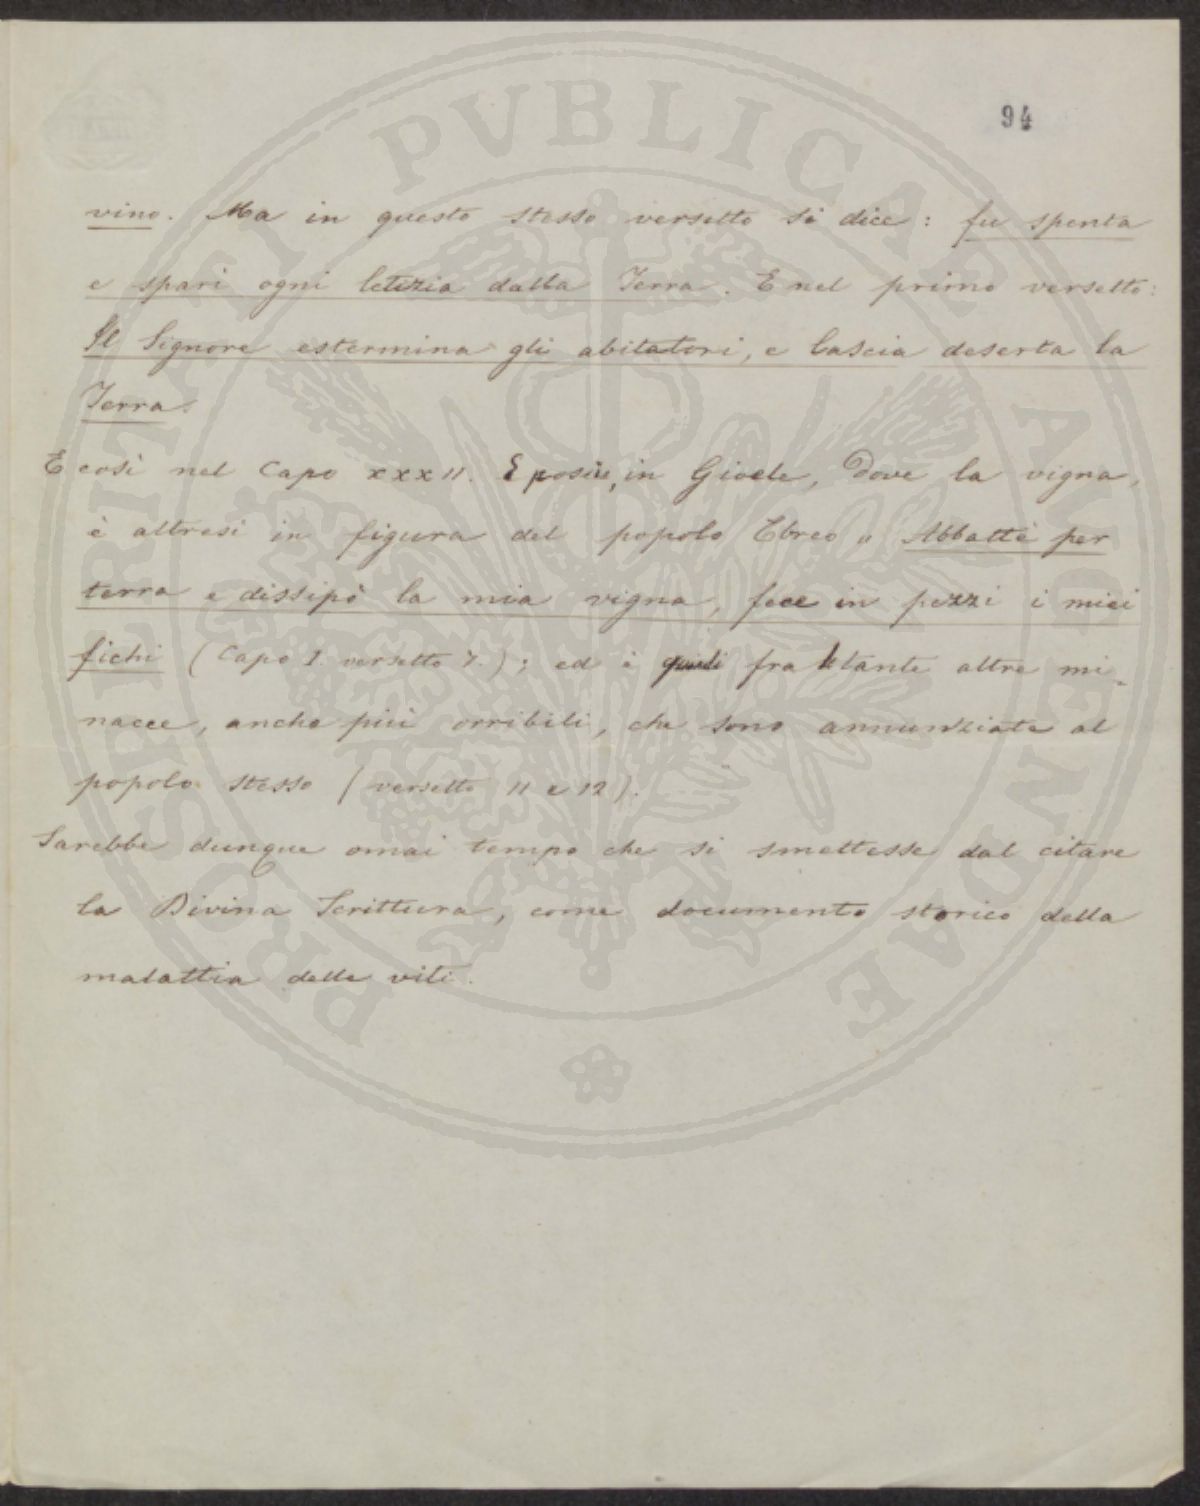 94
vino. Ma in questo stesso versetto si dice: fu spenta
e sparì ogni letizia dalla Terra. E nel primo versetto:
Il Signore estermina gli abitatori, e lascia deserta la
Terra.
E così nel Capo XXXII. E posìa, in Gioele, Dove la vigna,
è altresì in figura del popolo Ebreo „ Abbattè per
terra e dissipò la mia vigna, fece in pezzi i miei
fichi (Capo I. versetto 7.); ed è quindi fra tante altre mi-
nacce, anche più orribili, che sono annunziate al
popolo stesso (versetto 11 e 12).
Sarebbe dunque omai tempo che si smettesse dal citare
la Divina Scrittura, come documento storico della
malattia delle viti.
PROSPERITATI PVBLICAE AVGENDAE